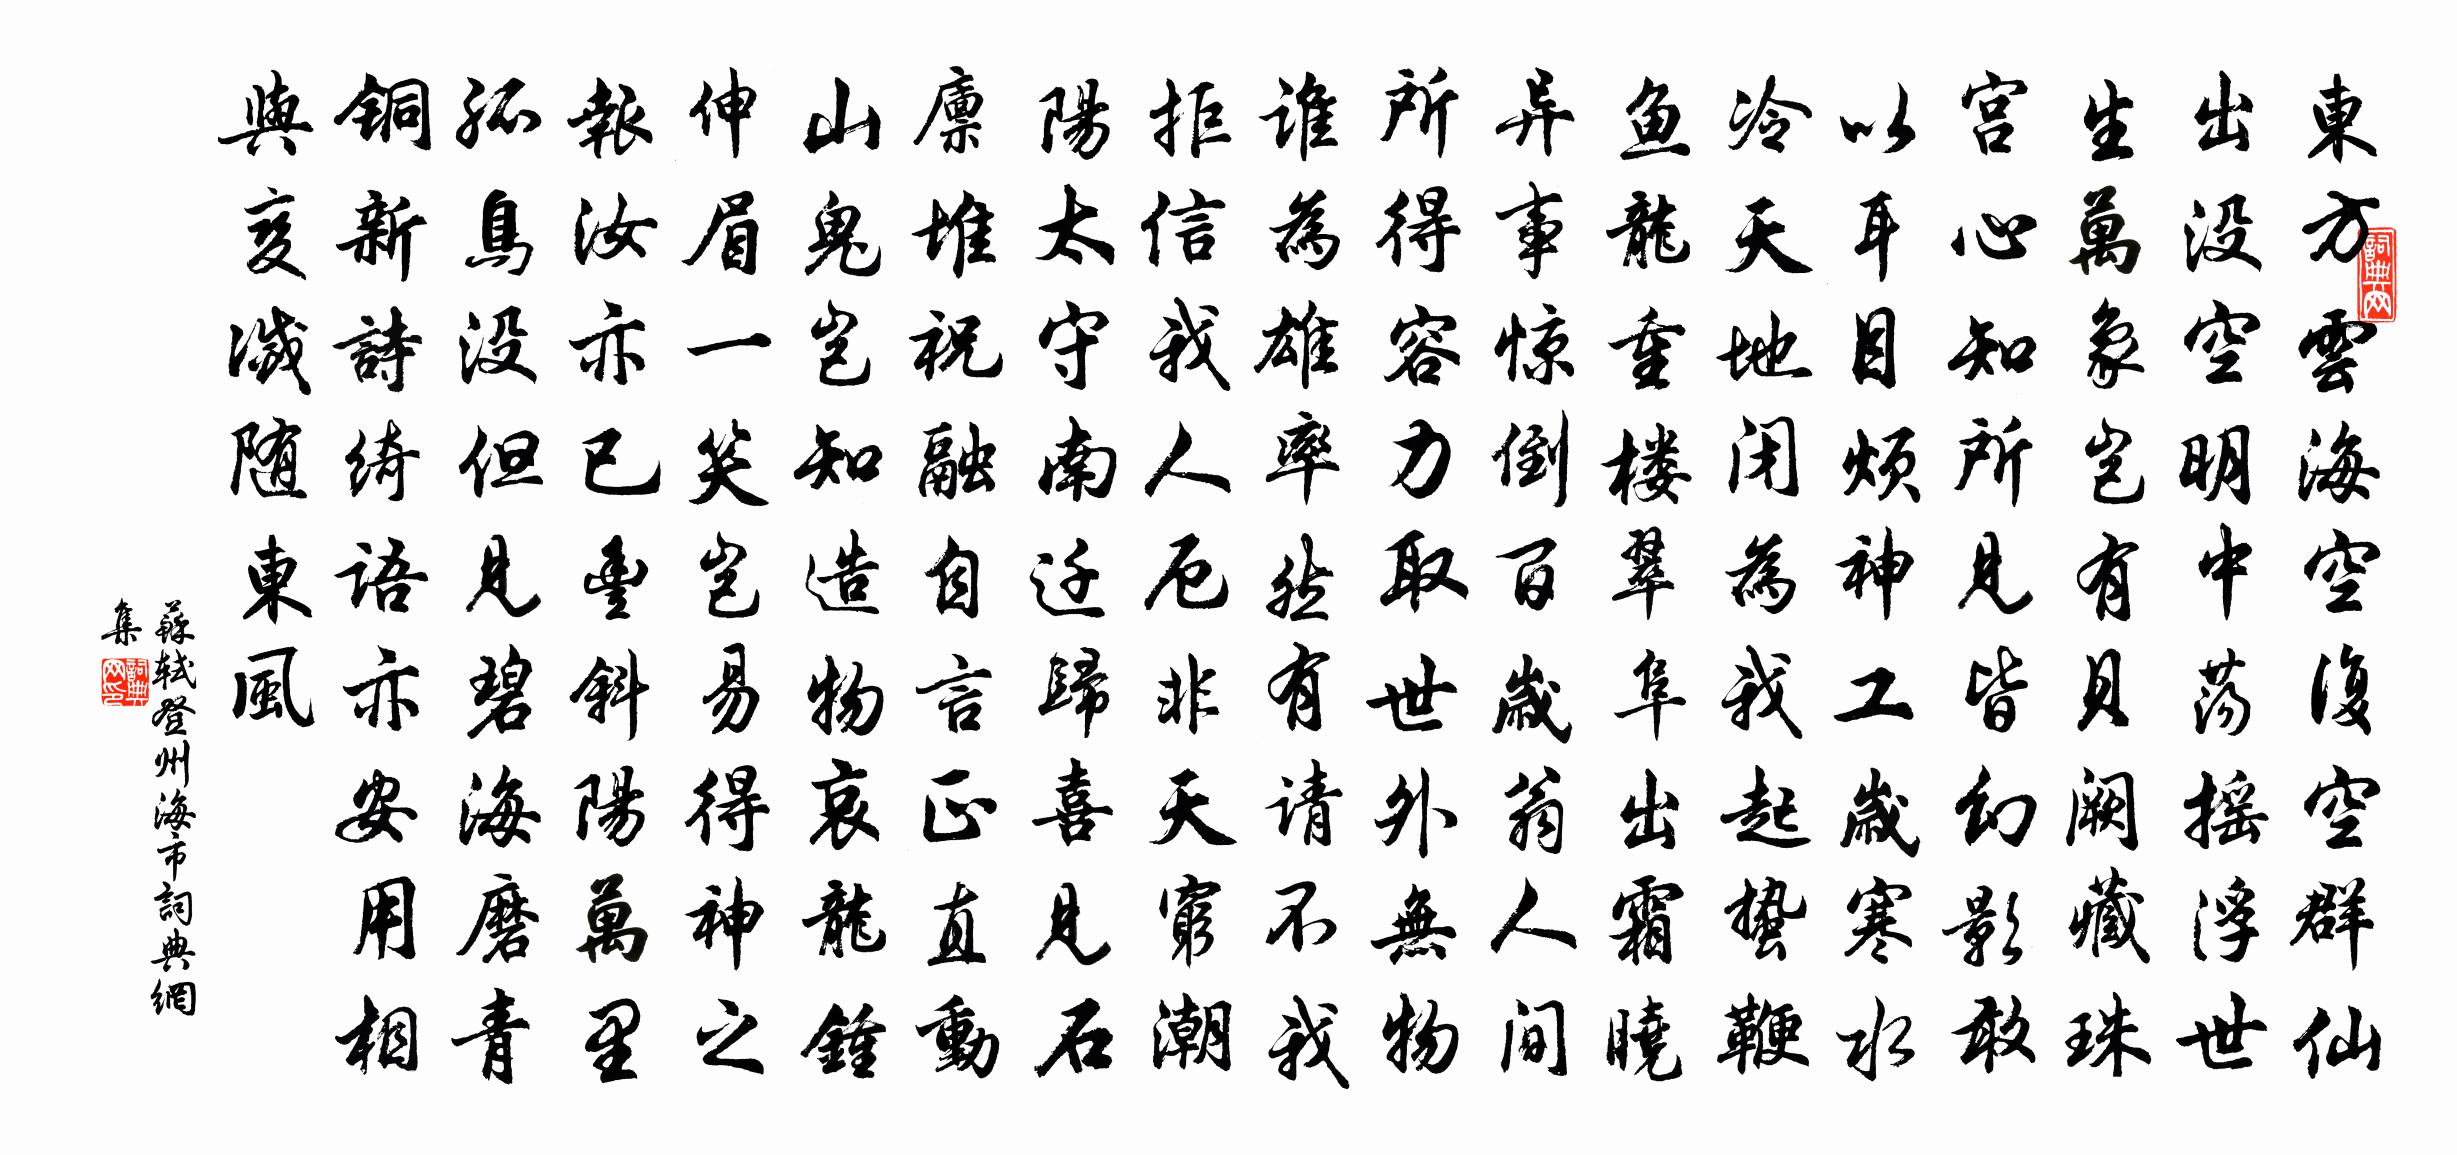 東方雲海空復空群仙
出没空明中荡摇浮世
生萬象岂有貝阙藏珠
宫心知所見皆幻影敢
以耳目烦神工歲寒水
冷天地闭為我起蛰鞭
鱼龍重楼翠阜出霜曉
异事惊倒百歲翁人间
所得容力取世外無物
谁為雄率然有请不我
拒信我人厄非天窮潮
陽太守南迁歸喜見石
廪堆祝融自言正直動
山鬼岂知造物哀龍鍾
伸眉一笑岂易得神之
報汝亦已豐斜陽萬里
孤鳥没但見碧海磨青
銅新詩绮語亦安用相
與變滅随東風
蘇軾登州海市詞典網
集
詞典网
詞典网印